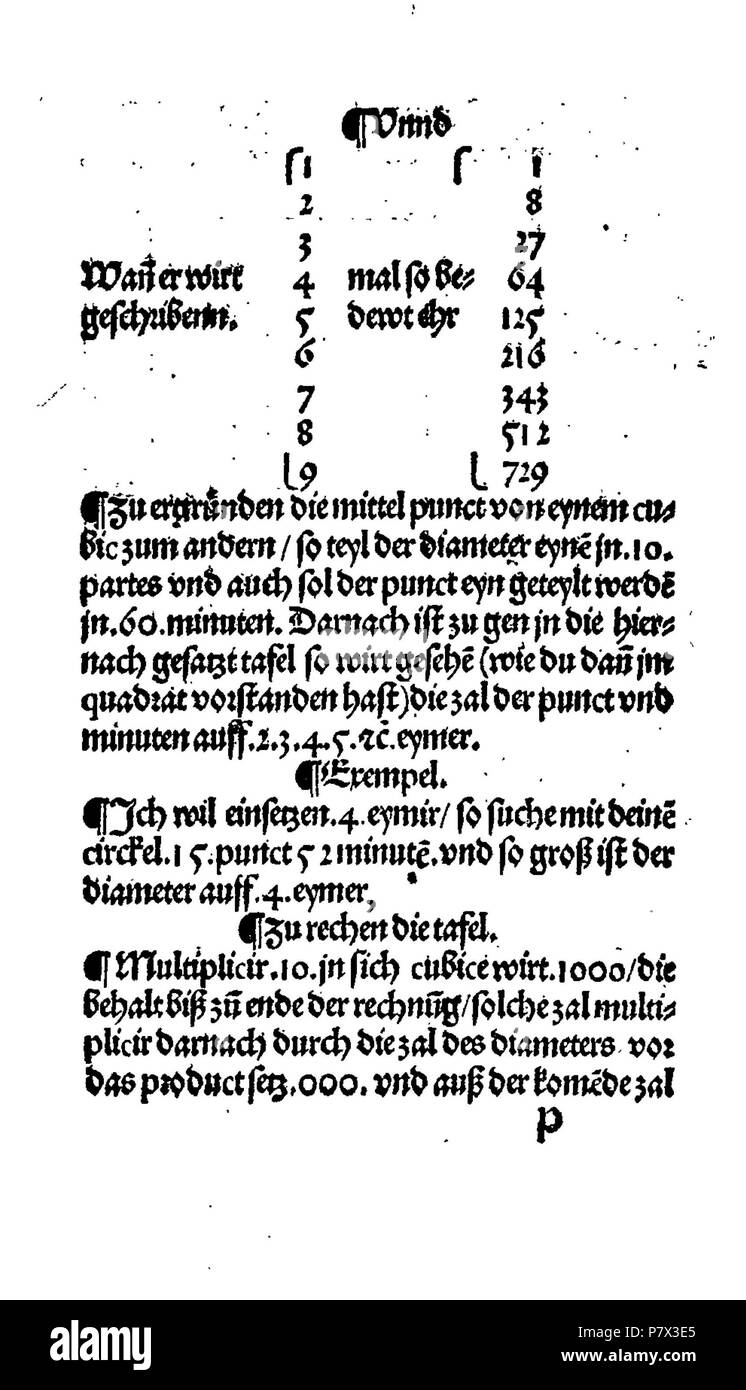 ¶Vnnd
1 1
2 8
3 27
Wañ er wirt 4 mal so be⸗ 64
geschribenn. 5 dewt ehr 125
6 216
7 343
8 512
9 729
¶Zu ergrunden die mittel punct von eynem cu⸗
bic zum andern / so teyl der diameter eynē jn .10.
partes vnd auch sol der punct eyn geteylt werdē
jn .60. minuten. Darnach ist zu gen jn die hier⸗
nach gesatzt tafel so wirt gesehē (wie du dañ jm
quadrat vorstanden hast) die zal der punct vnd
minuten auff .2.3.4.5.ꝛc̄. eymer.
¶Exempel.
¶Ich wil einsetzen .4. eymir / so suche mit deinē
circkel .15. punct 52 minutē. vnd so groß ist der
diameter auff .4. eymer,
¶Zu rechen die tafel.
¶Multiplicir .10. jn sich cubice wirt .1000 / die
behalt biß zū ende der rechnūg / solche zal multi⸗
plicir darnach durch die zal des diameters vor
das product setz .000. vnd auß der komēde zal
p
alamy
Image ID: P7X3E5
www.alamy.com